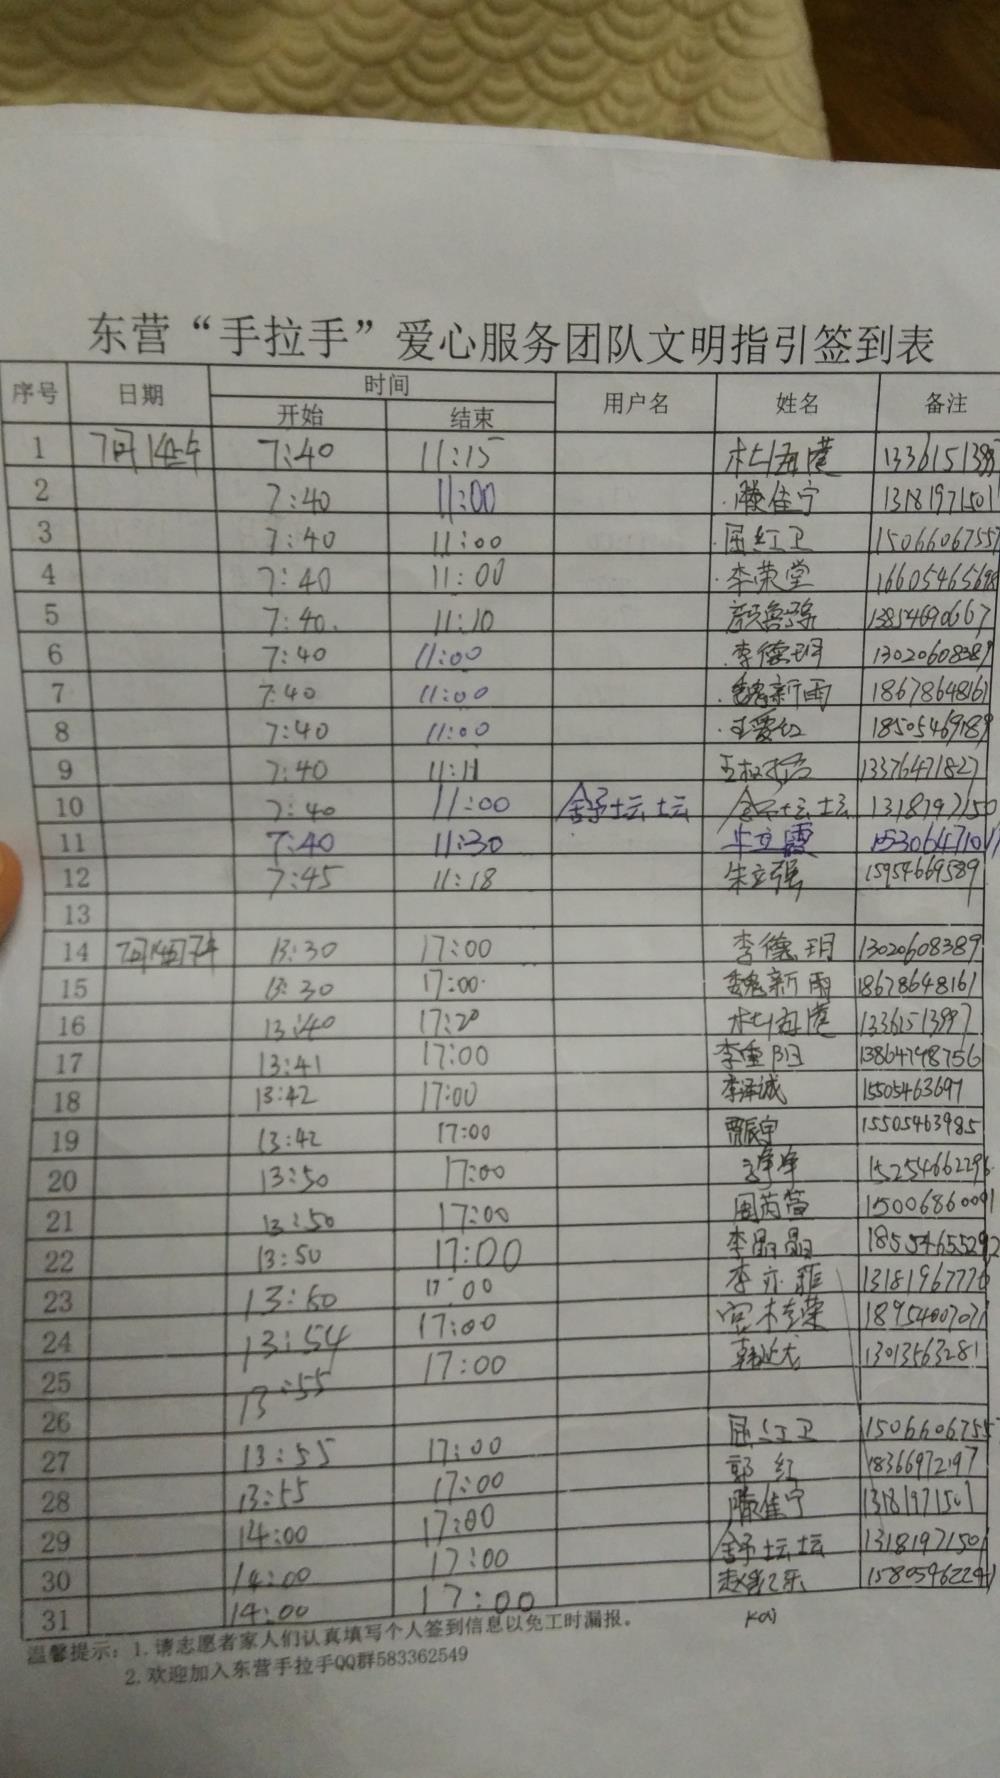 东营“手拉手”爱心服务团队文明指引签到表
序号 日期 时间 用户名 姓名 备注
开始 结束
1 7月14上午 7:40 11:15 杜海港
2 7:40 11:00 滕佳宁 13181971501
3 7:40 11:00 屈红卫 15066067557
4 7:40 11:00 李荣堂
5 7:40 11:10 13854690667
6 7:40 11:00 李德玥 13020608389
7 7:40 11:00 魏新雨 18678648161
8 7:40 11:00 王爱红 18505469189
9 7:40 11:11 13376471827
10 7:40 11:00 舒坛坛 舒坛坛 1318197150
11 7:40 11:30 牛立霞
12 7:45 11:18 朱立强 15954669589
13
14 13:30 17:00 李德玥 13020608389
15 13:30 17:00 魏新雨 18678648161
16 13:40 17:20 杜海港 13361513997
17 13:41 17:00 李重阳 13864798756
18 13:42 17:00 李泽诚 15505463697
19 13:42 17:00 贾宸宇 15505463985
20 13:50 17:00 15254662296
21 13:50 17:00 周芮萱 15006860091
22 13:50 17:00 李晶晶 18554655292
23 13:50 17:00 李亦菲 13181967776
24 13:54 17:00 宫桂荣 18954007071
25 13:55 17:00 13013563281
26
27 13:55 17:00 屈红卫 15066067557
28 13:55 17:00 郭红 18366972197
29 14:00 17:00 滕佳宁 13181971501
30 14:00 17:00 舒坛坛 13181971501
31 14:00 17:00
温馨提示：1.请志愿者家人们认真填写个人签到信息以免工时漏报。
2.欢迎加入东营手拉手QQ群583362549